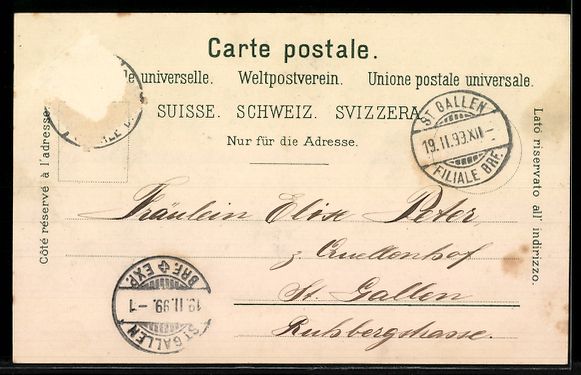 Carte postale.
le universelle. Weltpostverein. Unione postale universale.
SUISSE. SCHWEIZ. SVIZZERA.
Nur für die Adresse.
Côté réservé à l'adresse.
Lato riservato all' indirizzo.
ST GALLEN
19.II.99.XII–
FILIALE BRF.
Fräulein Elise Peter
z Quellenhof
St. Gallen
Rutsbergstrasse.
BRF. EXP.
19.II.99.–1
ST GALLEN